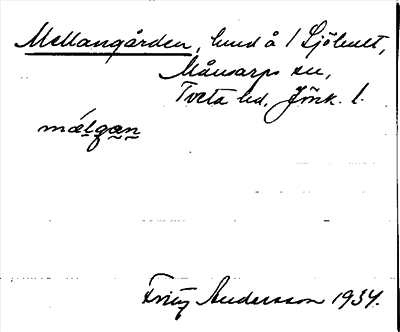 Mellangården, hmd å 1 Sjöhult,
Månsarps sn,
Tveta hd, Jönk. l.
mǽlgan
Fritz Andersson 1934.